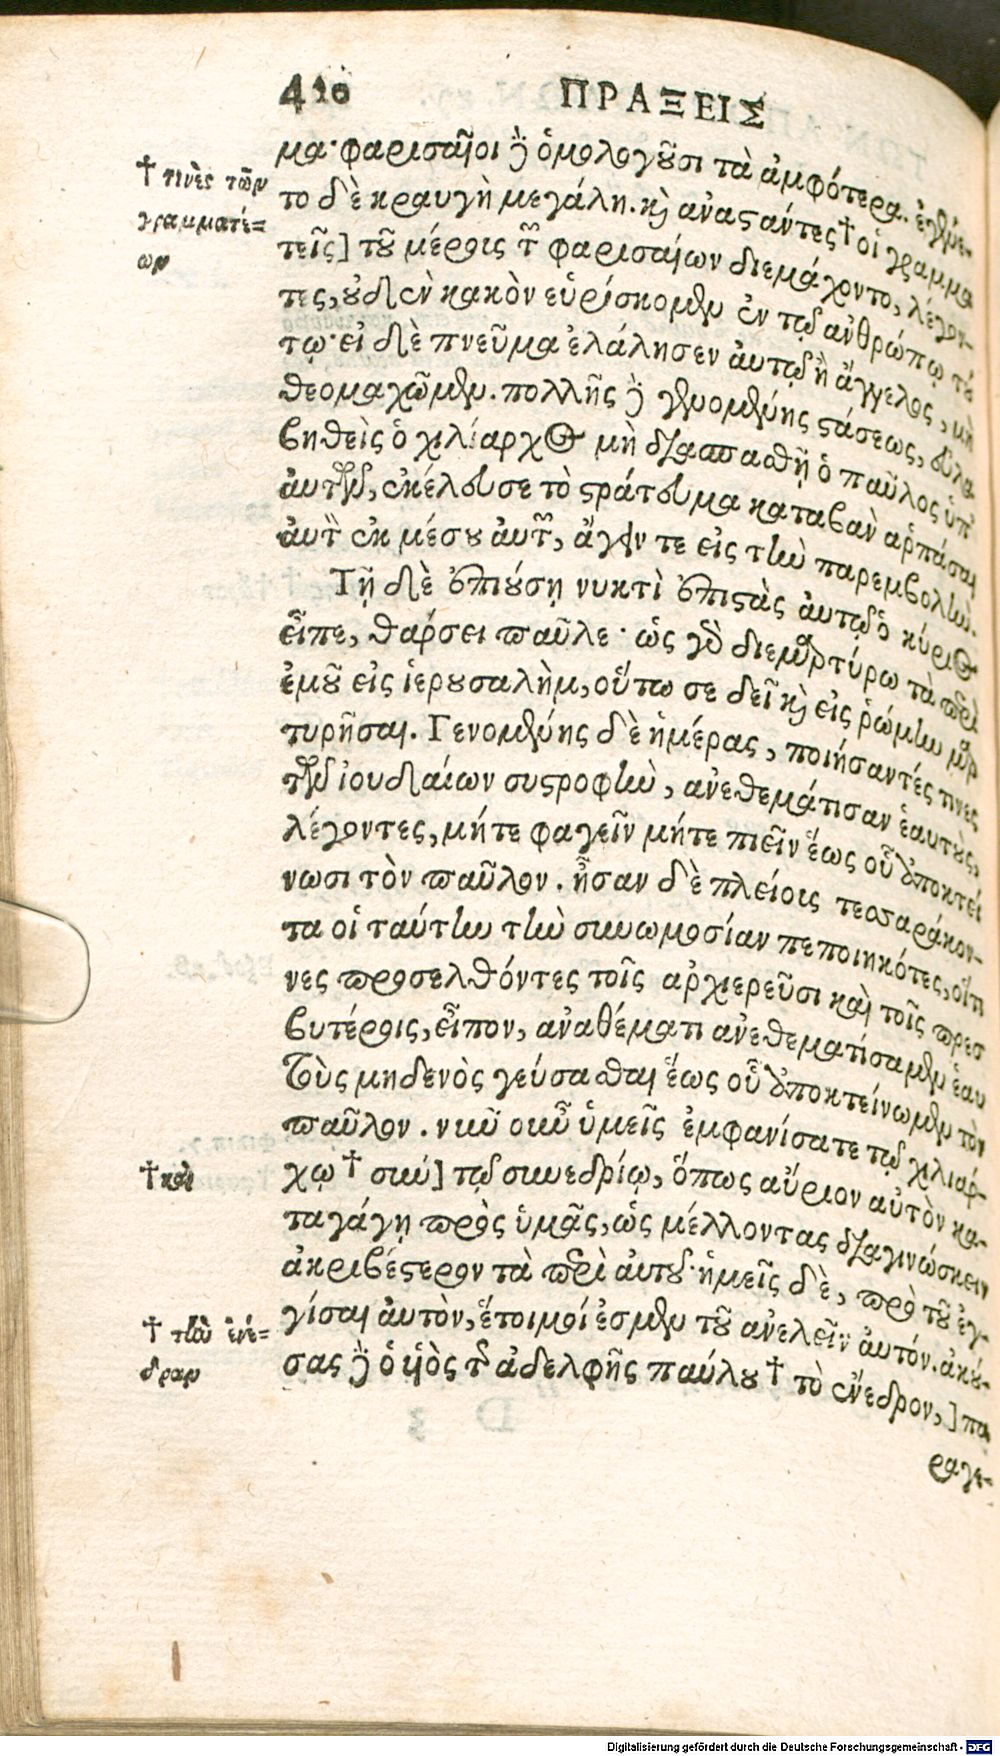 410 ΠΡΑΞΕΙΣ
μα· φαρισαῖοι ἢ ὁμολογοῦσι τὰ ἀμφότερα. ἐγένε-
το δὲ κραυγὴ μεγάλη. καὶ ἀναστάντες † οἱ γραμμα
τεῖς] τοῦ μέρους τῶν φαρισαίων διεμάχοντο, λέγον-
τες, οὐδὲν κακὸν εὑρίσκομεν ἐν τῷ ἀνθρώπῳ τού
τῳ· εἰ δὲ πνεῦμα ἐλάλησεν αὐτῷ ἢ ἄγγελος, μὴ
θεομαχῶμεν. πολλῆς δὲ γενομένης στάσεως, εὐλα
βηθεὶς ὁ χιλίαρχος μὴ διασπασθῇ ὁ παῦλος ὑπ'
αὐτῶν, ἐκέλευσε τὸ στράτευμα καταβὰν ἁρπάσαι
αὐτὸν ἐκ μέσου αὐτῶν, ἄγειν τε εἰς τὴν παρεμβολήν.
Τῇ δὲ ἐπιούσῃ νυκτὶ ἐπιστὰς αὐτῷ ὁ κύριος
εἶπε, θάρσει παῦλε· ὡς γὰρ διεμαρτύρω τὰ περὶ
ἐμοῦ εἰς ἱερουσαλὴμ, οὕτω σε δεῖ καὶ εἰς ῥώμην μαρ
τυρῆσαι. Γενομένης δὲ ἡμέρας, ποιήσαντές τινες
τῶν ἰουδαίων συστροφὴν, ἀνεθεμάτισαν ἑαυτοὺς,
λέγοντες, μήτε φαγεῖν μήτε πιεῖν ἕως οὗ ἀποκτεί
νωσι τὸν παῦλον. ἦσαν δὲ πλείους τεσσαράκον-
τα οἱ ταύτην τὴν συνωμοσίαν πεποιηκότες, οἵτι
νες προσελθόντες τοῖς ἀρχιερεῦσι καὶ τοῖς πρεσ
βυτέροις, εἶπον, ἀναθέματι ἀνεθεματίσαμεν ἑαυ
τοὺς μηδενὸς γεύσασθαι ἕως οὗ ἀποκτείνωμεν τὸν
παῦλον. νῦν οὖν ὑμεῖς ἐμφανίσατε τῷ χιλιάρ-
χῳ † σὺν] τῷ συνεδρίῳ, ὅπως αὔριον αὐτὸν κα-
ταγάγῃ πρὸς ὑμᾶς, ὡς μέλλοντας διαγινώσκειν
ἀκριβέστερον τὰ περὶ αὐτοῦ· ἡμεῖς δὲ, πρὸ τοῦ ἐγ-
γίσαι αὐτὸν, ἕτοιμοί ἐσμεν τοῦ ἀνελεῖν αὐτόν. ἀκού-
σας δὲ ὁ υἱὸς τῆς ἀδελφῆς παύλου † τὸ ἔνεδρον,] πα
ραγε-
† τινὲς τῶν
γραμματέ-
ων
† καὶ
† τὴν ἐνέ-
δραν
Digitalisierung gefördert durch die Deutsche Forschungsgemeinschaft - DFG